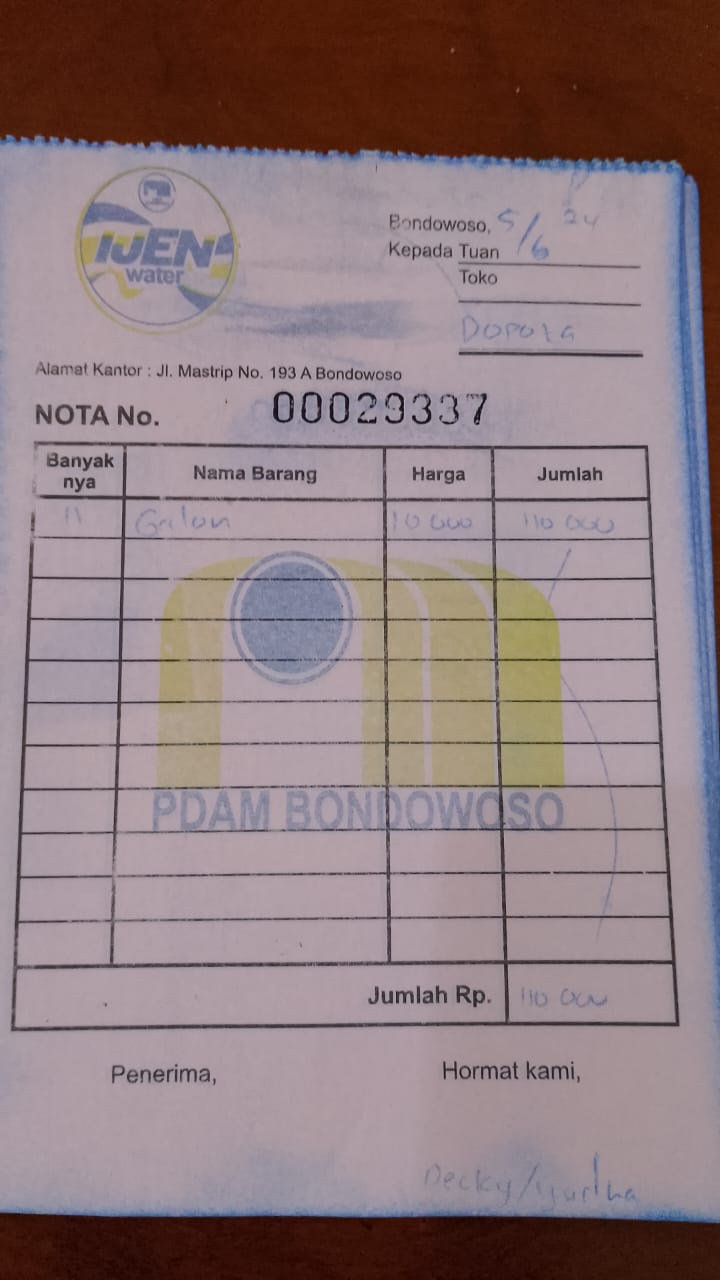 IJEN
water
Bondowoso, 5/6 24
Kepada Tuan
Toko
Alamat Kantor : Jl. Mastrip No. 193 A Bondowoso
NOTA No. 00029337
Banyak nya Nama Barang Harga Jumlah
11 Galon 10 000 110 000
PDAM BONDOWOSO
Jumlah Rp. 110 000
Penerima, Hormat kami,
Decky/